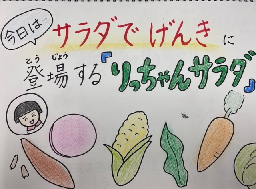 今日は
サラダでげんきに
とう じょう
登場する『りっちゃんサラダ』